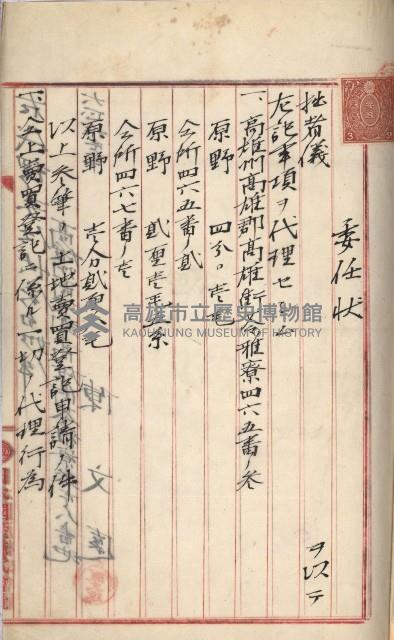 委任状
拙者儀 ヲ以テ
左記事項ヲ代理セシム
一、高雄州高雄郡高雄街苓雅寮四六五番ノ参
原野 四分〇壱毛
仝所四六五番ノ貳
原野 貳厘壱毛 糸
仝所四六七番ノ壱
原野 壱分貳厘 毛
以上参筆ノ土地賣買登記申請ノ件
一、以上賣買登記ニ係ル一切ノ代理行為
高雄市立歷史博物館
KAOHSIUNG MUSEUM OF HISTORY